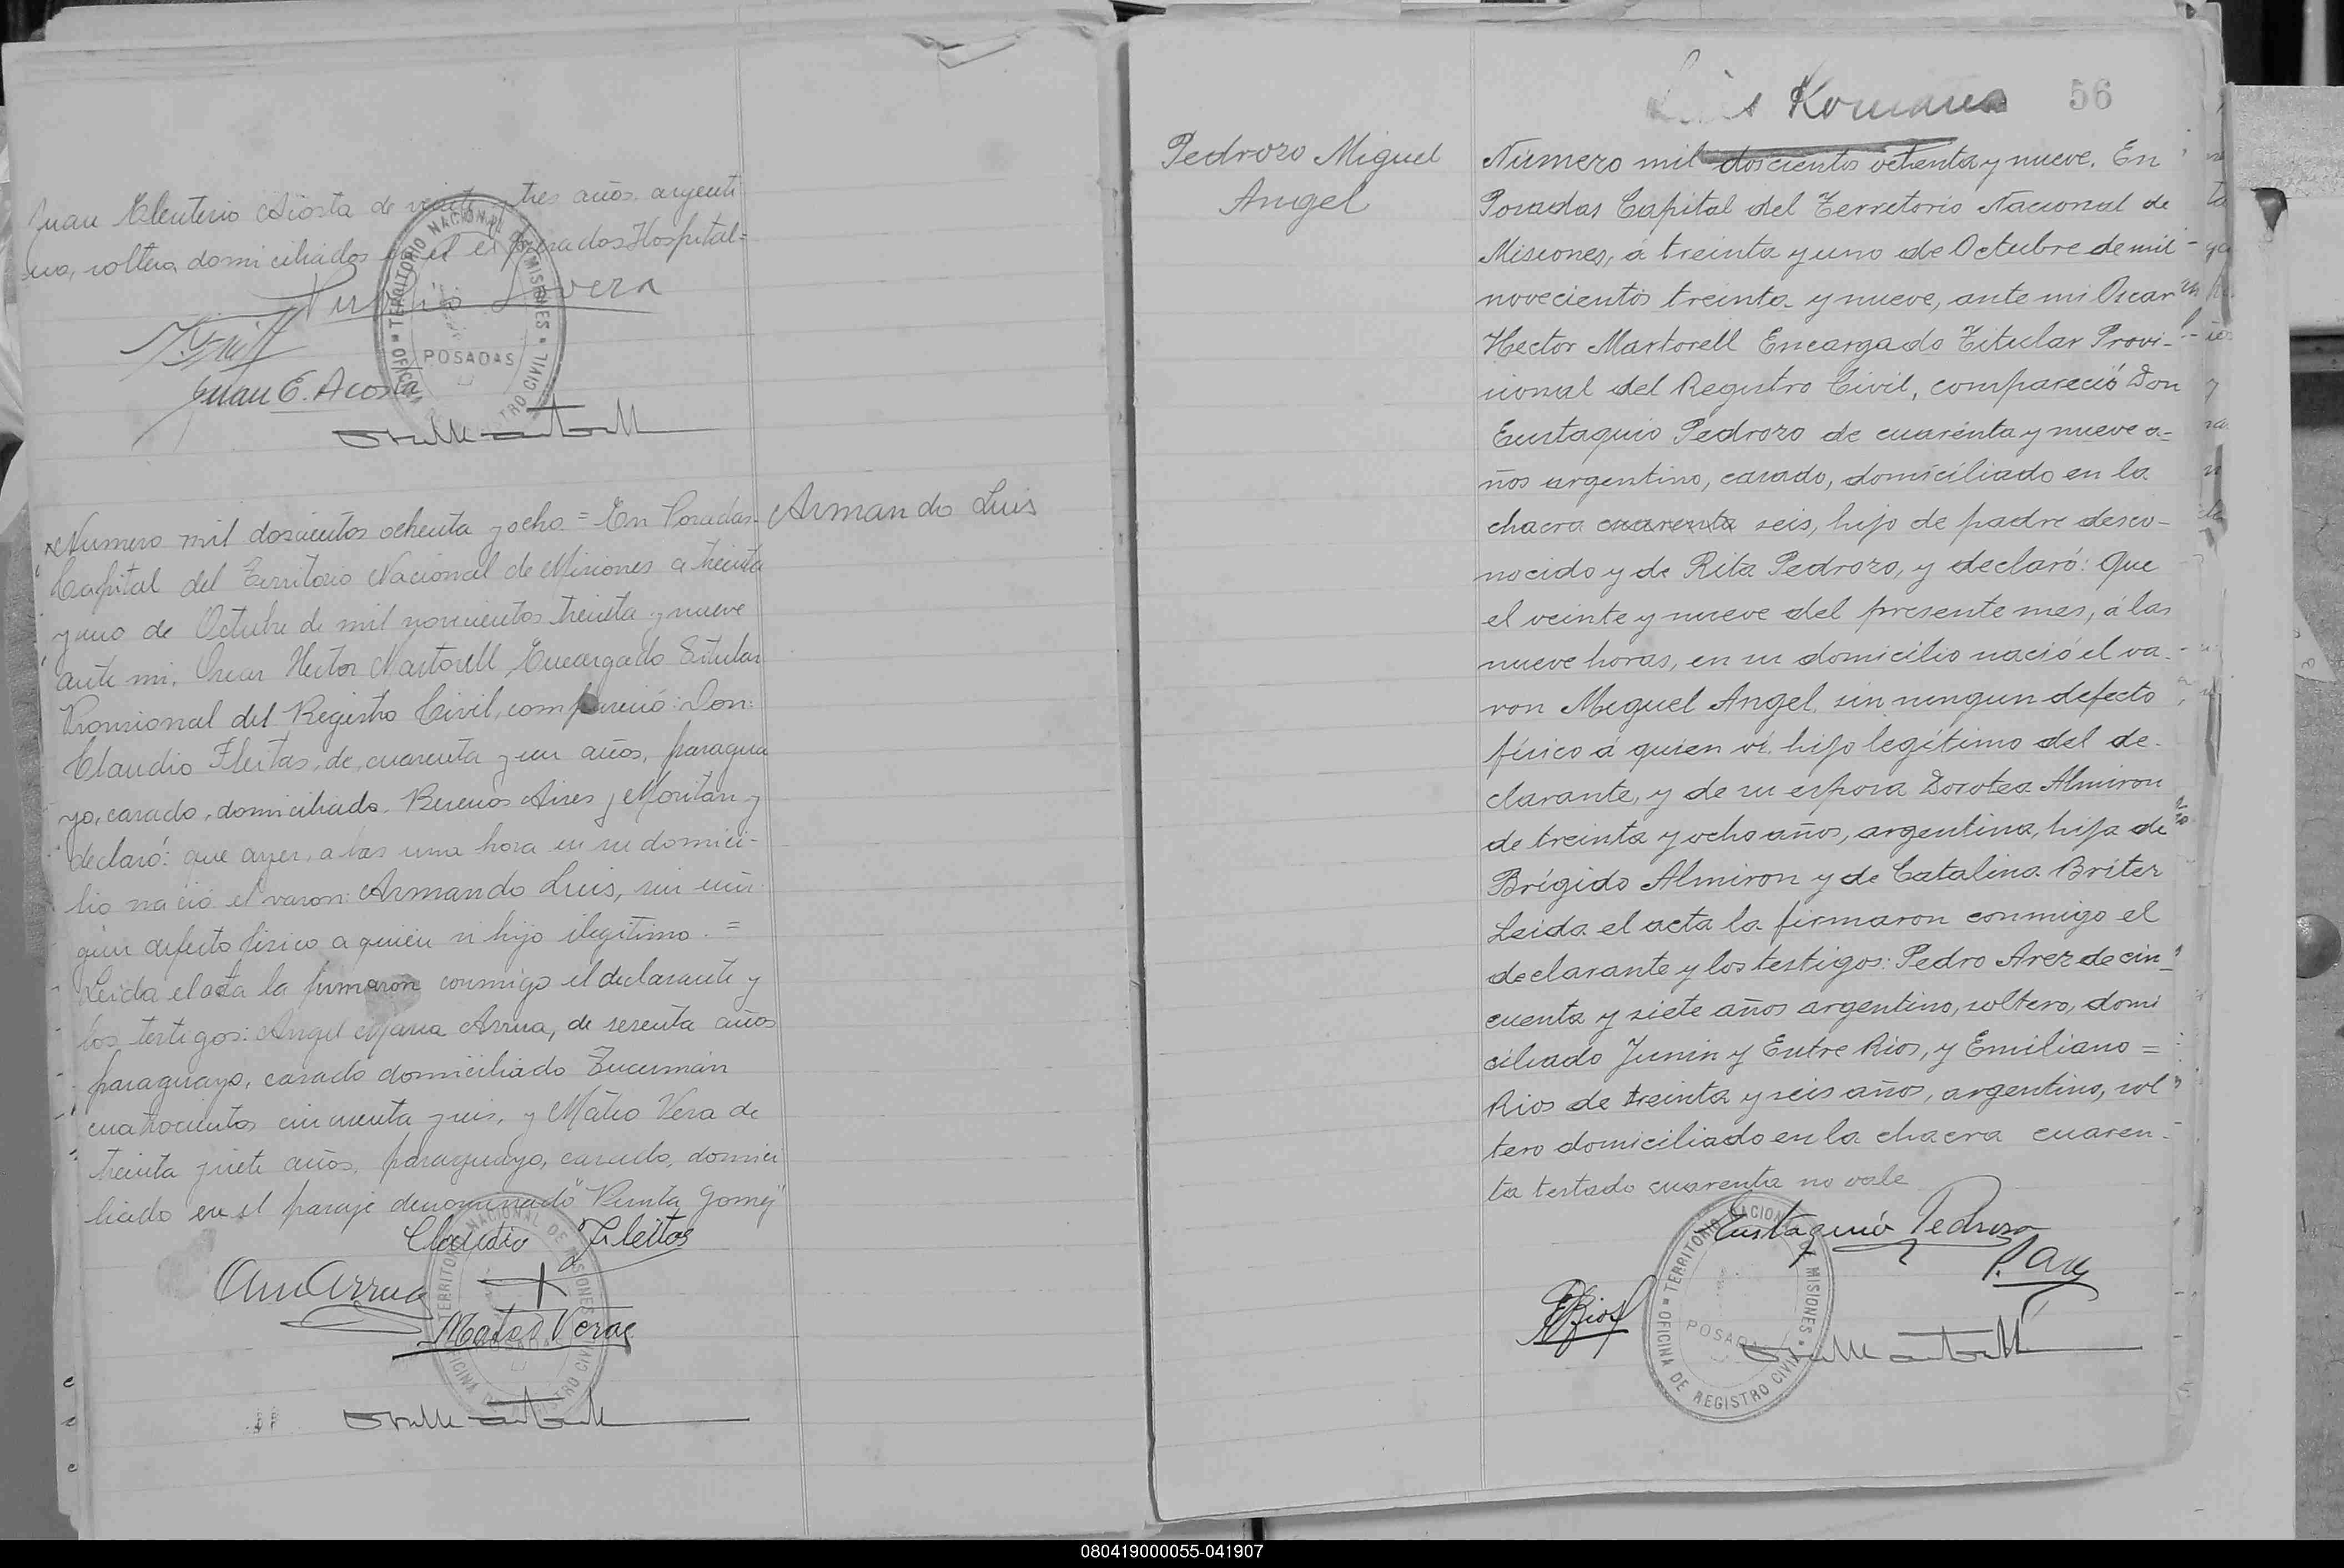 Juan Eleuterio Acosta de veinte y tres años, argenti-
no, soltero, domiciliados en el expresados Hospital=
Lovera
Juan E. Acosta
TERRITORIO NACIONAL DE MISIONES
OFICINA DE REGISTRO CIVIL
POSADAS
Numero mil doscientos ochenta y ocho = En Posadas
Armando Luis
Capital del Territorio Nacional de Misiones a treinta
y uno de Octubre de mil novecientos treinta y nueve
ante mi, Oscar Hector Martorell Encargado Titular
Provisional del Registro Civil, compareció: Don:
Claudio Fleitas, de, cuarenta y un años, paragua
yo, casado, domiciliado. Buenos Aires y Moritan y
declaró: que ayer, a las una hora en su domici-
lio nació el varon: Armando Luis, sin nin
gun defecto fisico a quien vi hijo ilegitimo. =
Leida el acta la firmaron conmigo el declarante y
los testigos: Angel Maria Arrua, de sesenta años
paraguayo, casado domiciliado Tucumán
cuatrocientos cincuenta y seis, y Mateo Vera de
treinta y siete años, paraguayo, casado, domici
liado en el paraje denominado "Punta Gomez"
Claudio Fleitas
Arrua
Mateo Vera
TERRITORIO NACIONAL DE MISIONES
OFICINA DE REGISTRO CIVIL
POSADAS
Luis Romano
56
Pedrozo Miguel
Angel
Número mil doscientos ochenta y nueve. En
Posadas Capital del Territorio Nacional de
Misiones, á treinta y uno de Octubre de mil
novecientos treinta y nueve, ante mi Oscar
Hector Martorell Encargado Titular Provi-
sional del Registro Civil, compareció Don
Eustaquio Pedrozo de cuarenta y nueve a=
ños argentino, casado, domiciliado en la
chacra cuarenta seis, hijo de padre desco-
nocido y de Rita Pedrozo, y declaró: Que
el veinte y nueve del presente mes, á las
nueve horas, en su domicilio nació el va-
ron Miguel Angel, sin ningun defecto
físico á quien ví. hijo legítimo del de-
clarante, y de su esposa Dorotea Almiron
de treinta y ocho años, argentina, hija de
Brígido Almiron y de Catalina Briter
Leida el acta la firmaron conmigo el
declarante y los testigos: Pedro Arez de cin-
cuenta y siete años argentino, soltero, domi
ciliado Junin y Entre Rios, y Emiliano =
Rios de treinta y seis años, argentino, sol
tero domiciliado en la chacra cuaren-
ta testado cuarenta no vale
Eustaquio Pedrozo
P. Arez
E Rios
TERRITORIO NACIONAL DE MISIONES
OFICINA DE REGISTRO CIVIL
POSADAS
080419000055-041907